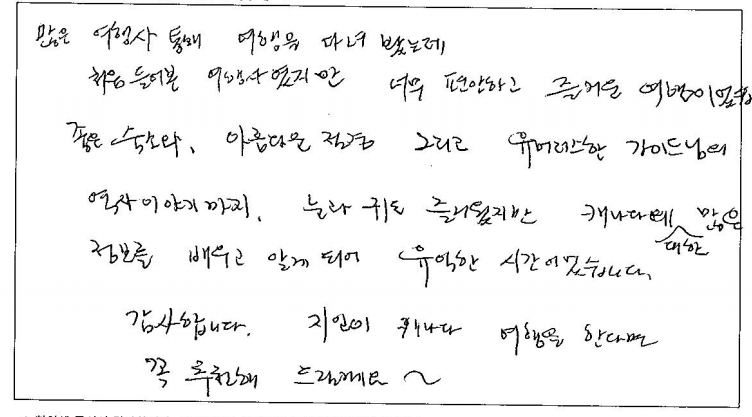 많은 여행사 통해 여행을 다녀 봤는데
처음 들어본 여행사였지만 너무 편안하고 즐거운 여행이였습
좋은 숙소와, 아름다운 전경 그리고 유머러스한 가이드님의
역사이야기까지, 눈과 귀도 즐거웠지만 캐나다에 대한 많은
정보를 배우고 알게 되어 유익한 시간이었습니다.
감사합니다. 지인이 캐나다 여행을 한다면
꼭 추천해 드릴께요 ~